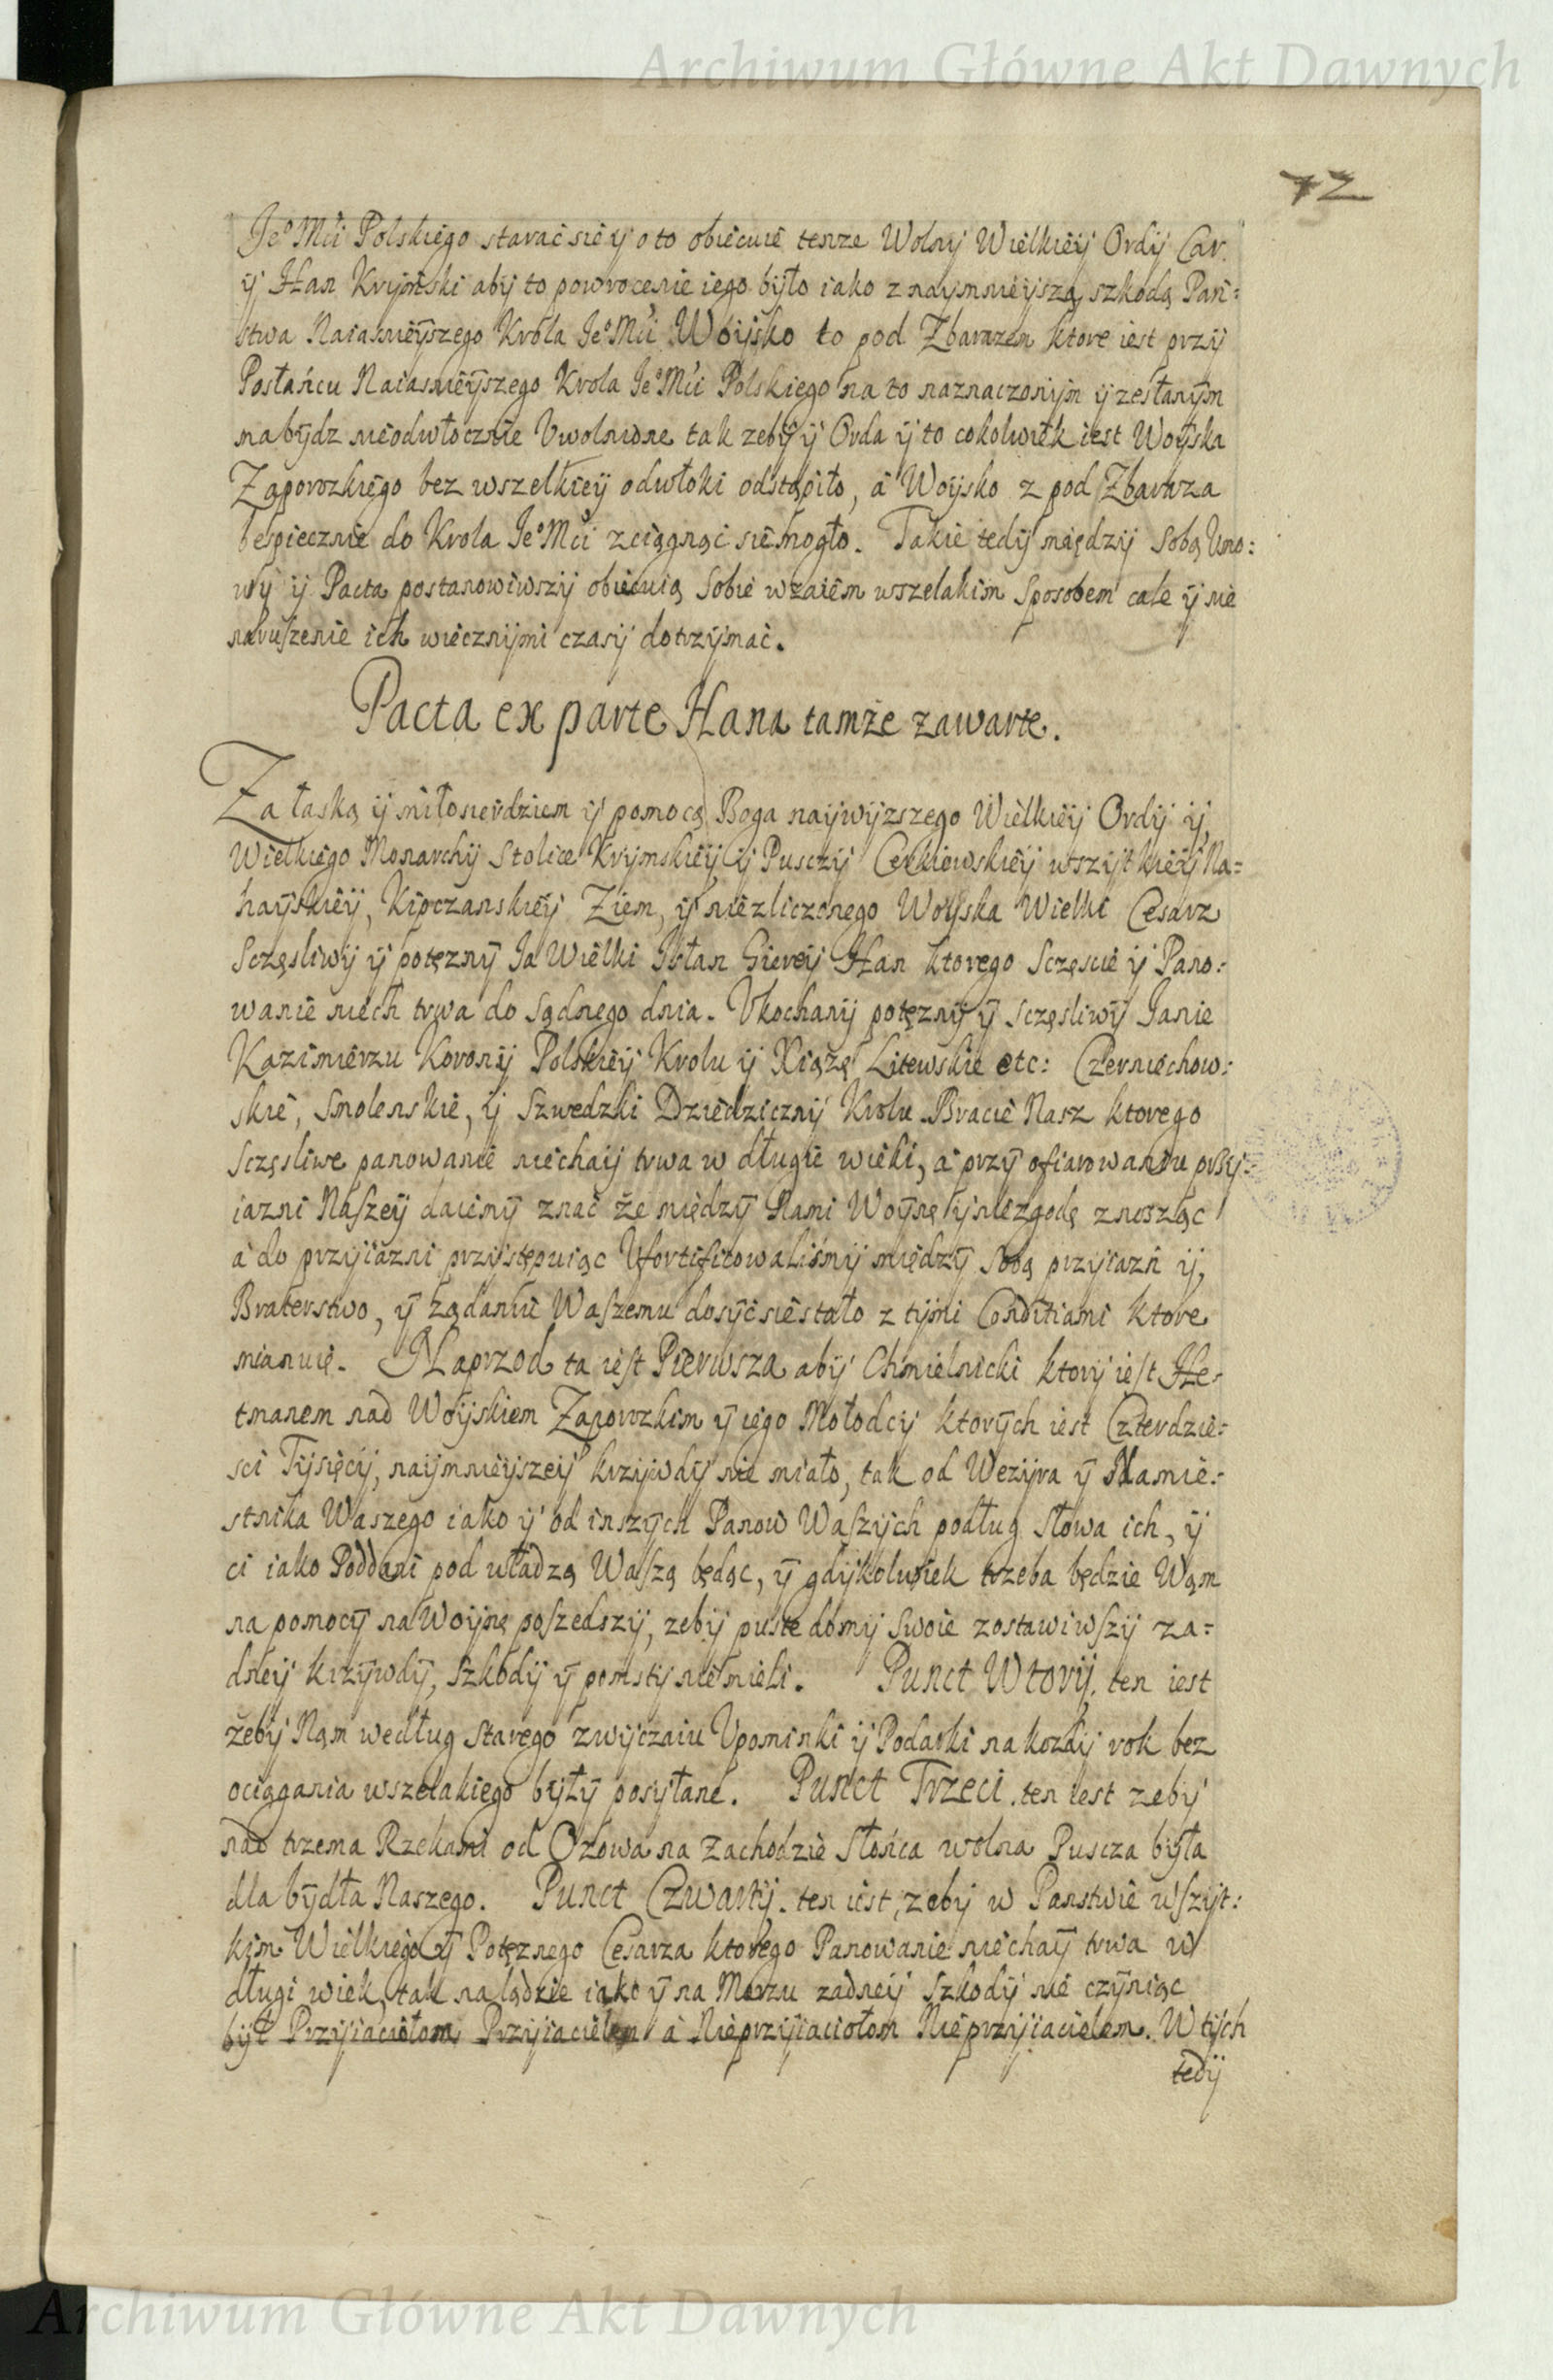 Archiwum Główne Akt Dawnych
72
Je⁰ Mći Polskiego starać się ÿ o to obiecuie tenze Wolnÿ Wielkieÿ Ordÿ Car
ÿ Han Krÿmski abÿ to powrocenie iego bÿło iako z naÿmnieÿszą szkodą Pań:
stwa Naiasnieÿszego Króla Je⁰ Mći Woÿsko to pod Zbarazem ktore iest przÿ
Posłańcu Naiasnieÿszego Krola Je⁰ Mći Polskiego na to naznaczonÿm ÿ zesłanÿm
ma bÿdz nieodwłocznie Uwolnione tak zebÿ ÿ Orda ÿ to cokolwiek iest Woÿska
Zaporozkiego bez wszelkieÿ odwłoki odstąpiło, á Woÿsko z pod Zbaraza
bespiecznie do Krola Je⁰ Mći zciągnąć się mogło. Takie tedÿ międzÿ Sobą Umo:
wÿ ÿ Pacta postanowiwszÿ obiecuią Sobie wzaiem wszelakim Sposobem cale ÿ nie
naruszenie ich wiecznÿmi czasÿ dotrzÿmać.
Pacta ex parte Hana tamże zawarte.
Za łaską ÿ miłosierdziem ÿ pomocą Boga naÿwÿzszego Wielkieÿ Ordÿ ÿ
Wielkiego Monarchÿ Stolice Krÿmskieÿ ÿ Pusczÿ Cerkiewskieÿ wszÿtkieÿ Na=
haÿskieÿ, Kipczanskieÿ Ziem, ÿ niezliczonego Woÿska Wielki Cesarz
Sczęsliwÿ ÿ potęznÿ Ja Wielki Isłan Giereÿ Han ktorego Sczęscie ÿ Pano:
wanie niech trwa do Sądnego dnia. Ukochanÿ potęznÿ ÿ Sczęsliwÿ Janie
Kazimierzu Koronÿ Polskieÿ Krolu ÿ Xiązę Litewskie etc: Czerniechow:
skie, Smolenskie, ÿ Szwedzki Dziedzicznÿ Krolu Bracie Nasz ktorego
Sczęsliwe panowanie niechaÿ trwa w długie wieki, á przÿ ofiarowaniu przÿ:
iazni Naszeÿ daiemÿ znać że międzÿ Nami Woÿnę ÿ niezgodę znosząc
á do przÿiazni przÿstępuiąc Ufortificowaliśmÿ międzÿ Sobą przÿiazń ÿ
Braterstwo, ÿ żądaniu Waszemu dosÿć się stało z tÿmi Conditiami ktore
mianuię. Naprzod ta iest Pierwsza abÿ Chmielnicki ktorÿ iest He=
tmanem nad Woÿskiem Zaporozkim ÿ iego Mołodcÿ ktorÿch iest Czterdzie:
sci Tÿsięcÿ, naÿmnieÿszeÿ krzÿwdÿ nie miało, tak od Wezÿra ÿ Namie:
stnika Waszego iako ÿ od inszÿch Panow Waszÿch podług Słowa ich, ÿ
ci iako Poddani pod władzą Waszą będąc, ÿ gdÿkolwiek trzeba będzie Wąm
na pomocÿ na Woÿnę poszedszÿ, zebÿ puste domÿ Swoie zostawiwszÿ za=
dneÿ krzÿwdÿ, Szkodÿ ÿ pomstÿ nie mieli. Punct Wtorÿ, ten iest
żebÿ Nąm według Starego zwÿczaiu Upominki ÿ Podarki na kozdÿ rok bez
ociągania wszelakiego bÿłÿ posÿłane. Punct Trzeci. ten iest zebÿ
nad trzema Rzekami od Ozowa na zachodzie Słońca wolna Puscza bÿła
dla bÿdła Naszego. Punct Czwartÿ. ten iest, zebÿ w Panstwie wszÿt:
kim Wielkiego ÿ Potęznego Cesarza ktorego Panowanie niechaÿ trwa w
długi wiek, tak na lądzie iako ÿ na Morzu zadneÿ Szkodÿ nie czÿniąc
bÿł Przÿiaciołom Przÿiacielem á Nieprzÿiaciołom Nieprzÿiacielem. W tÿch
tedÿ
Archiwum Główne Akt Dawnych